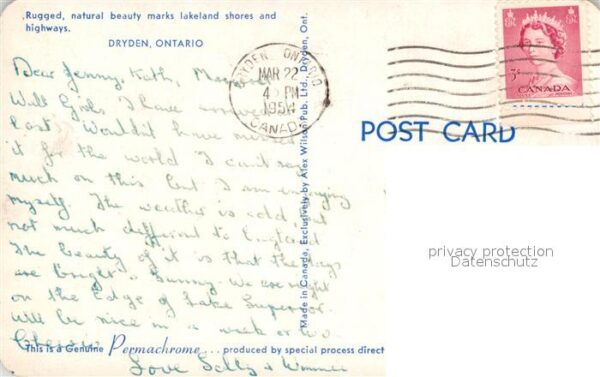 Rugged, natural beauty marks lakeland shores and
highways.
DRYDEN, ONTARIO
Dear Jenny, Kath,
Well Girls I have arrived at
last. Wouldn't have missed
it for the world I can't say
much on this but I am enjoying
myself. The weather is cold but
not much different to England
The beauty of it is that the days
are bright & Sunny. We are right
on the Edge of Lake Superior
will be nice in a week or two
Love Sally &
This is a Genuine Permachrome... produced by special process direct
DRYDEN ONTARIO
MAR 22
4 PM
1954
CANADA
Made in Canada, Exclusively by Alex Wilson Pub. Ltd., Dryden, Ont.
3¢
CANADA
POST CARD
privacy protection
Datenschutz